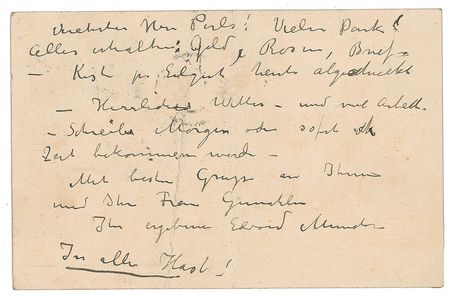 Verehrter Herr Perls! Vielen Dank!
Alles erhalten: Geld, Rosen, Brief –
– Kiste per Eilgut heute abgeschickt
– Herrliches Wetter – und viel Arbeit –
– Schreibe Morgen oder sofort
Zeit bekommen werde –
Mit besten Grüßen an Ihnen
und Ihr Frau Gemahlin
Ihr ergebener Edvard Munch
In aller Hast!